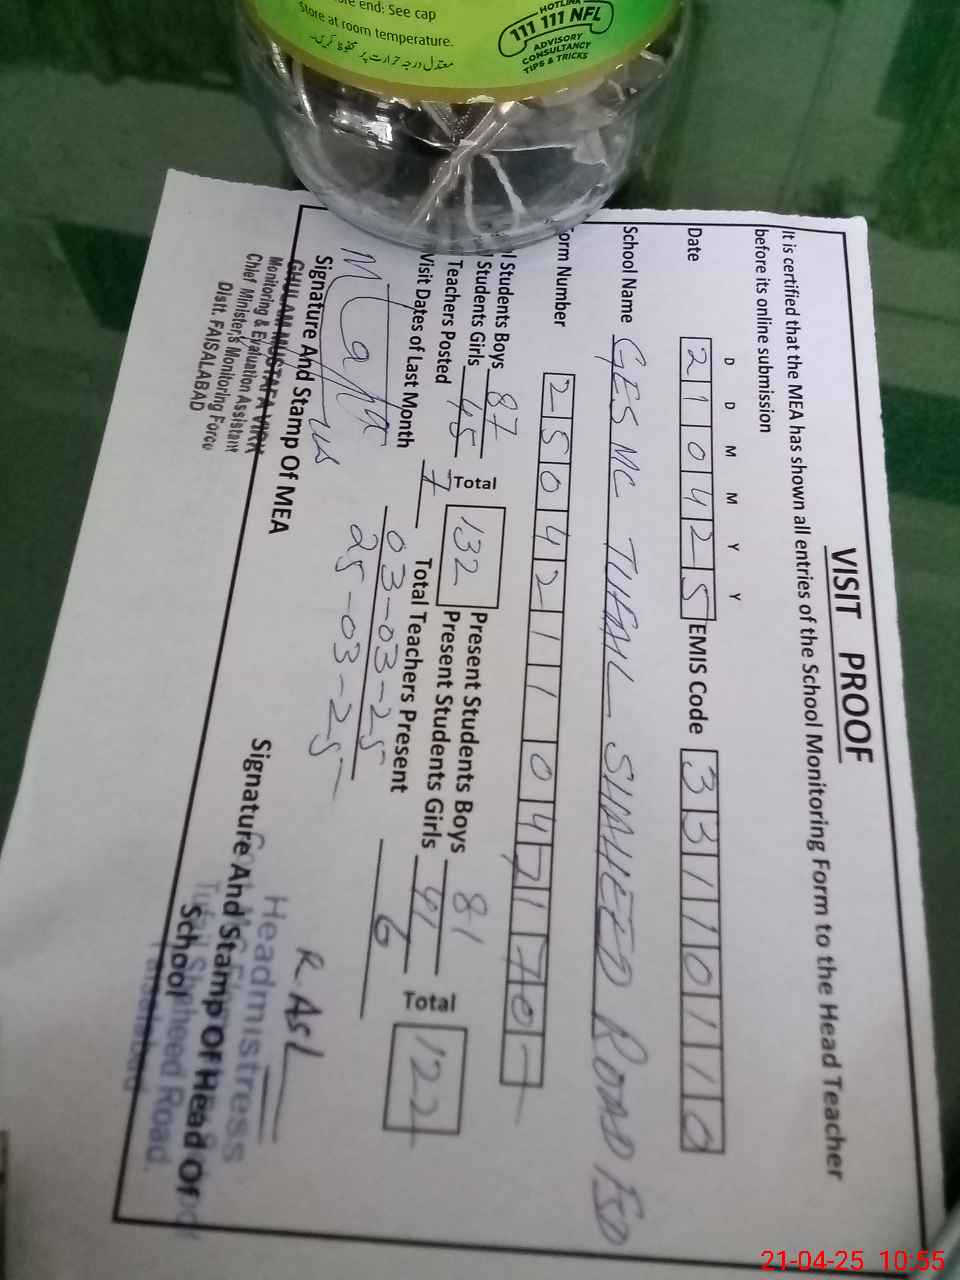 re end: See cap
Store at room temperature.
معتدل درجہ حرارت پر محفوظ کریں۔
HOTLINE
111 111 NFL
ADVISORY
CONSULTANCY
TIPS & TRICKS
VISIT PROOF
It is certified that the MEA has shown all entries of the School Monitoring Form to the Head Teacher
before its online submission
D D M M Y Y
Date 210425 EMIS Code 33110110
School Name GES MC TUFAIL SHAHEED ROAD FSD
orm Number
l Students Boys 87 Total 132 Present Students Boys 81 Total 122
l Students Girls 45 Present Students Girls 41
Teachers Posted 7 Total Teachers Present 6
Visit Dates of Last Month 03-03-25
25-03-25
Signature And Stamp Of MEA
GHULAM MUSTAFA VIRK
Monitoring & Evaluation Assistant
Chief Minister's Monitoring Force
Distt. FAISALABAD
Signature And Stamp Of Head Of
School
Headmistress
Tufail Shaheed Road,
Faisalabad
21-04-25 10:55